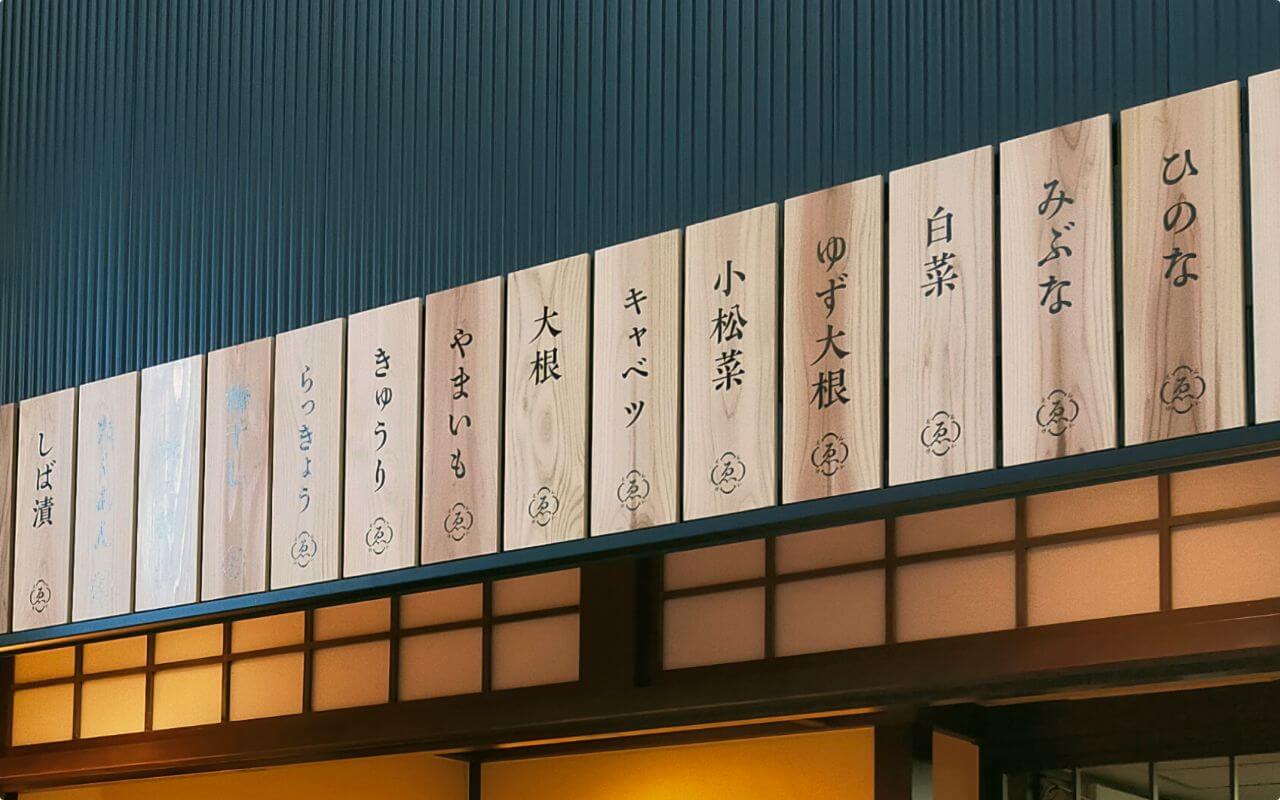 ひのな
みぶな
白菜
ゆず大根
小松菜
キャベツ
大根
やまいも
きゅうり
らっきょう
梅干し
しば漬